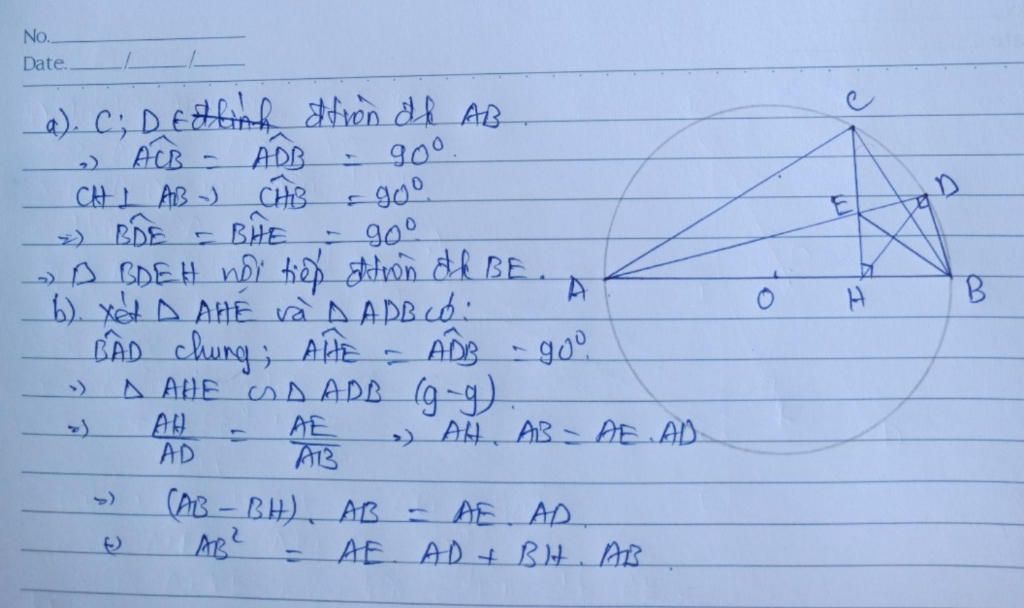 No.
Date. / /
a). C; D ∈ đường tròn đk AB
=> ACB = ADB = 90°.
CH ⊥ AB -> CHB = 90°.
=> BDE = BHE = 90°.
=> Δ BDEH nội tiếp đtròn đk BE.
b). Xét Δ AHE và Δ ADB có:
BAD chung; AHE = ADB = 90°.
=> Δ AHE ∽ Δ ADB (g-g).
=> AH/AD = AE/AB => AH. AB = AE. AD
=> (AB - BH). AB = AE. AD.
(=) AB² = AE. AD + BH. AB.
C
D
E
A
O
H
B